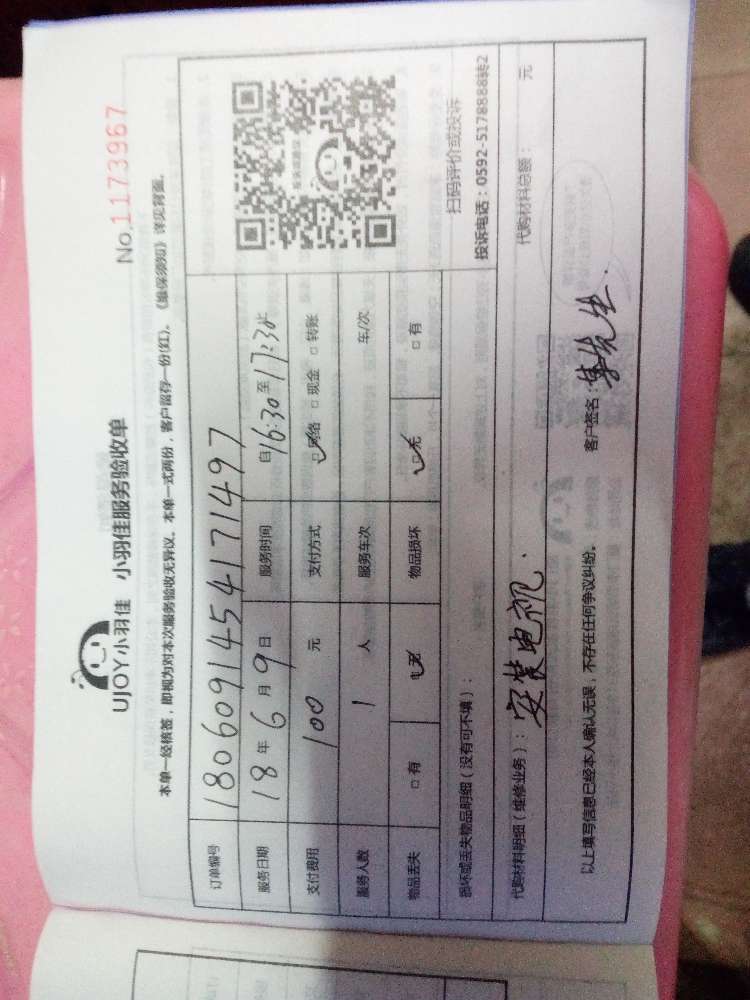 UJOY小羽佳 小羽佳服务验收单
No.1173967
本单一经核签，即视为对本次服务验收无异议。本单一式两份，客户留存一份(红)。《维保须知》详见背面。
订单编号 180609145417149​7
服务日期 18年6月9日 服务时间 自16:30至17:30止
支付费用 100元 支付方式 □网络 □现金 □转账
服务人数 1人 服务车次 车/次
物品丢失 □有 □无 物品损坏 □无 □有
扫码评价或投诉
损坏或丢失物品明细（没有可不填）：
投诉电话：0592-5178888转2
代购材料明细（维修业务）：安装电视. 代购材料总额： 元
以上填写信息已经本人确认无误，不存在任何争议纠纷。 客户签名：先生.